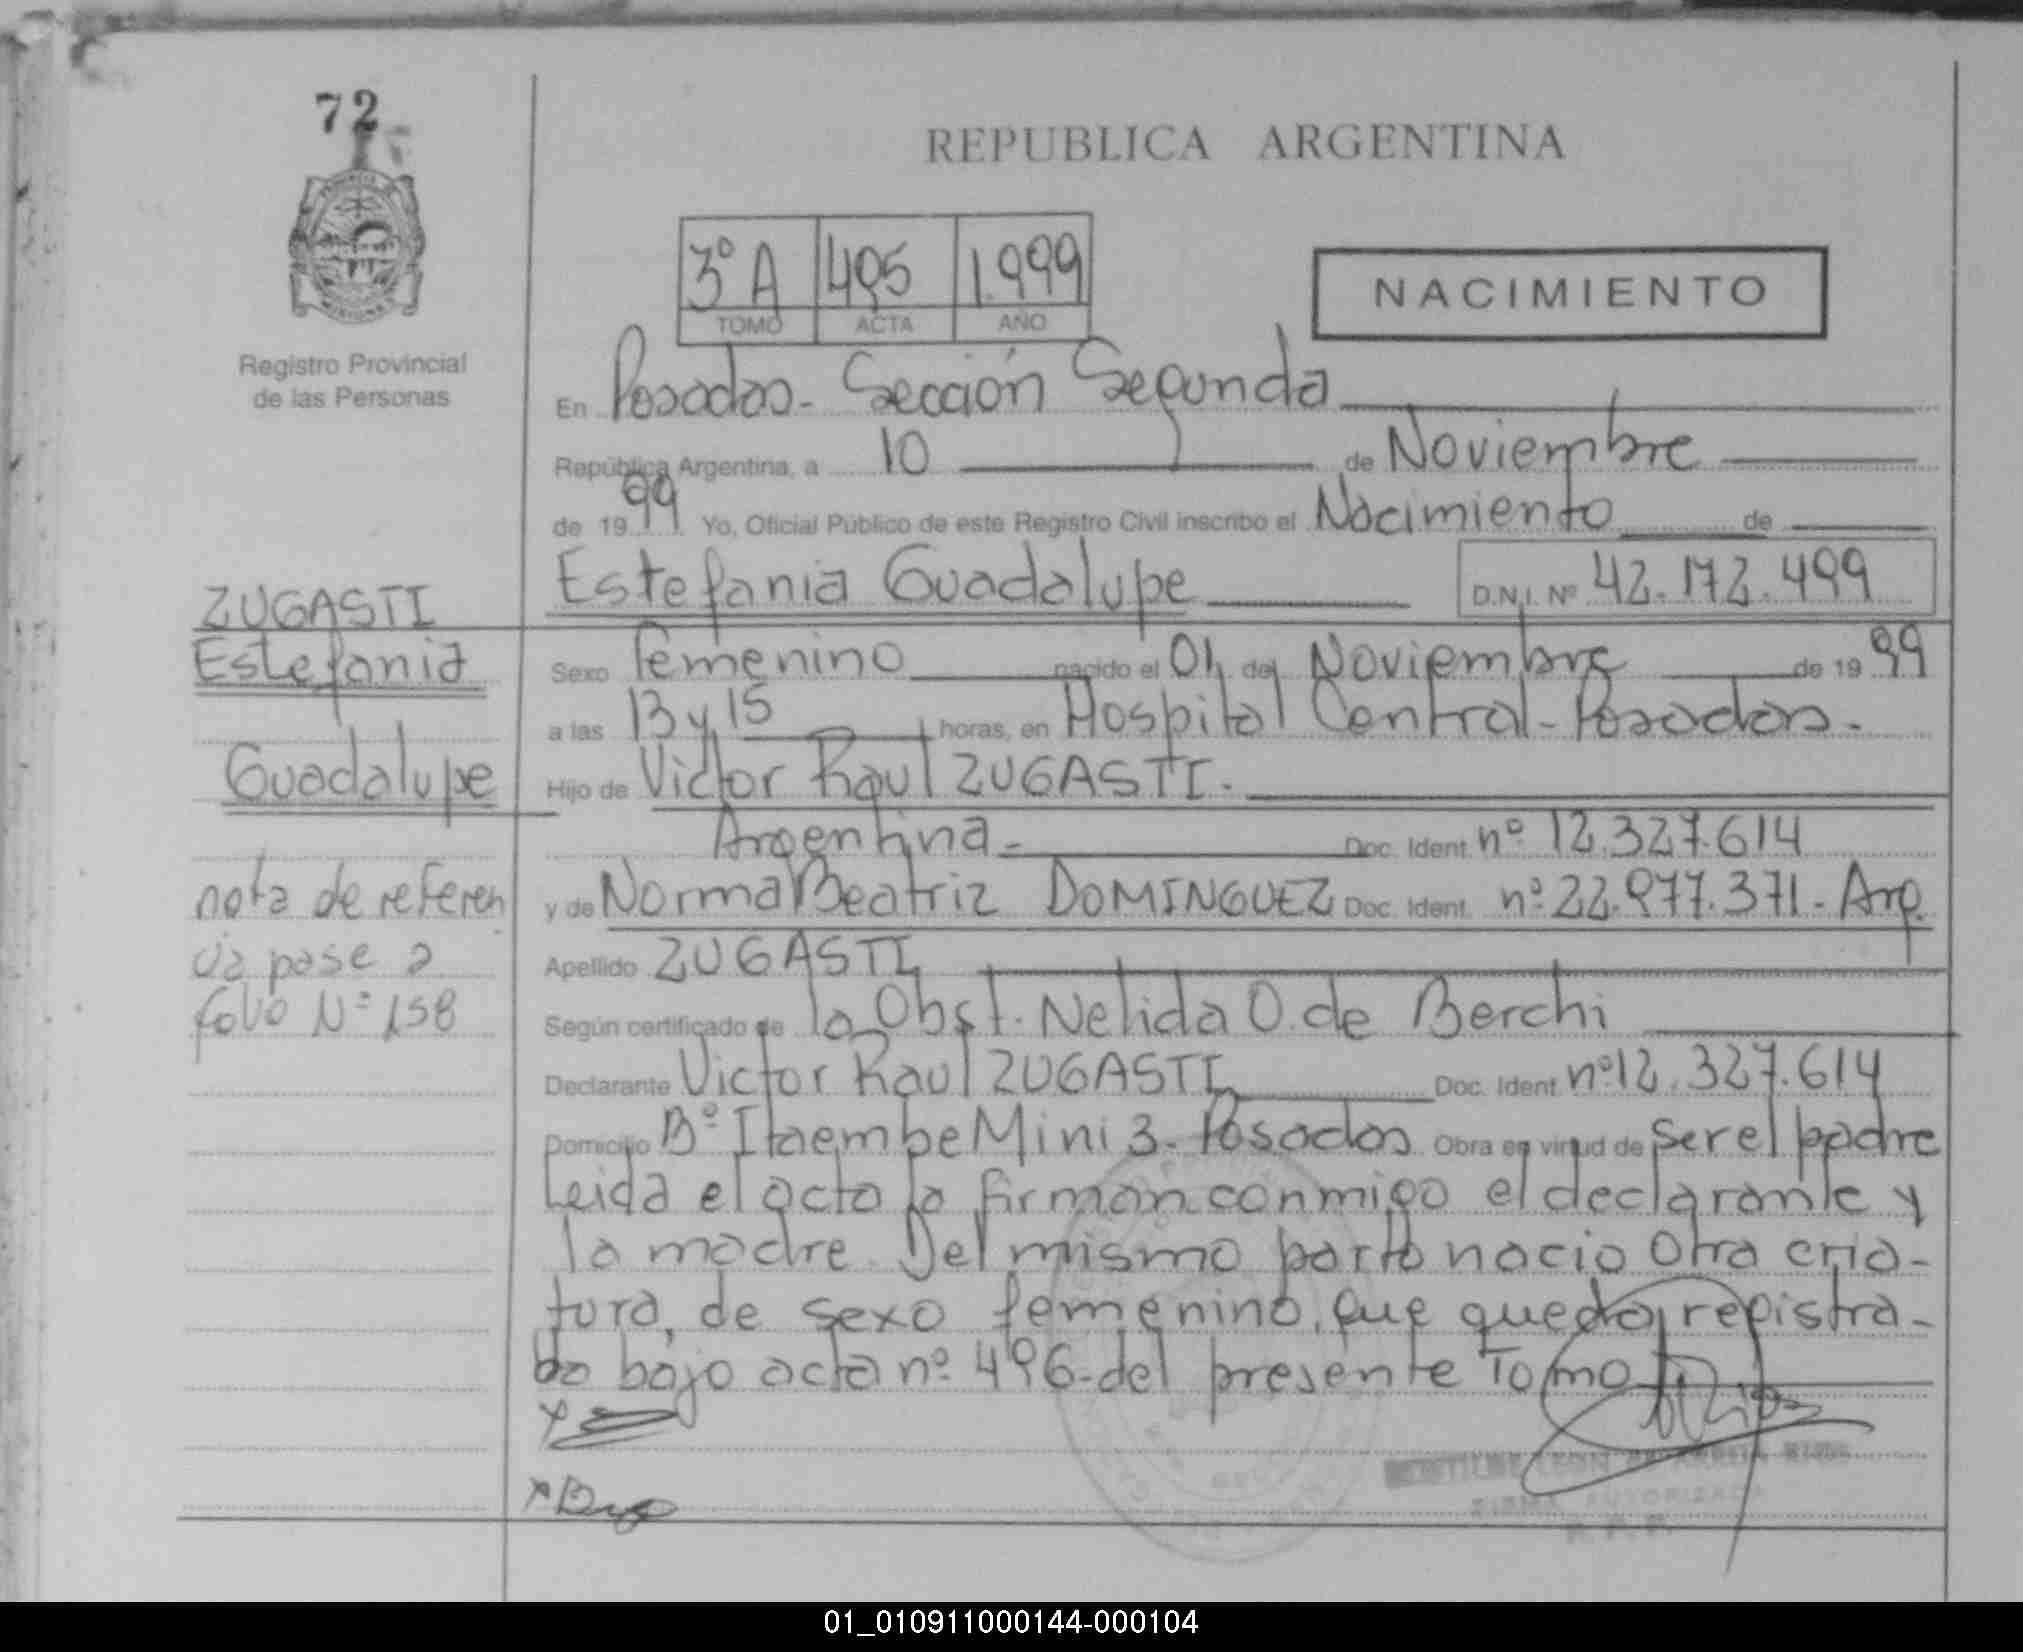 72
REPUBLICA ARGENTINA
3º A 495 1.999
TOMO ACTA AÑO
NACIMIENTO
Registro Provincial
de las Personas
En Posadas - Sección Segunda
República Argentina, a 10 de Noviembre
de 1999 Yo, Oficial Público de este Registro Civil inscribo el Nacimiento de
Estefania Guadalupe D.N.I. Nº 42.172.499
ZUGASTI
Estefania
Guadalupe
nota de referen
cia pase a
folio Nº 158
Sexo femenino nacido el 04 del Noviembre de 1999
a las 13 y 15 horas, en Hospital Central - Posadas.
Hijo de Victor Raul ZUGASTI.
Argentina - Doc. Ident. nº 12.327.614
y de Norma Beatriz DOMINGUEZ Doc. Ident. nº 22.977.371 - Arg.
Apellido ZUGASTI
Según certificado de la Obst. Nelida O. de Berchi
Declarante Victor Raul ZUGASTI Doc. Ident. nº 12.327.614
Domicilio Bº Itaembe Mini 3 - Posadas Obra en virtud de ser el padre
Leida el acta la firman conmigo el declarante y
la madre. Del mismo parto nacio otra cria-
tura, de sexo femenino, que queda registra-
da bajo acta nº 496 - del presente Tomo
FIRMA AUTORIZADA
01_010911000144-000104